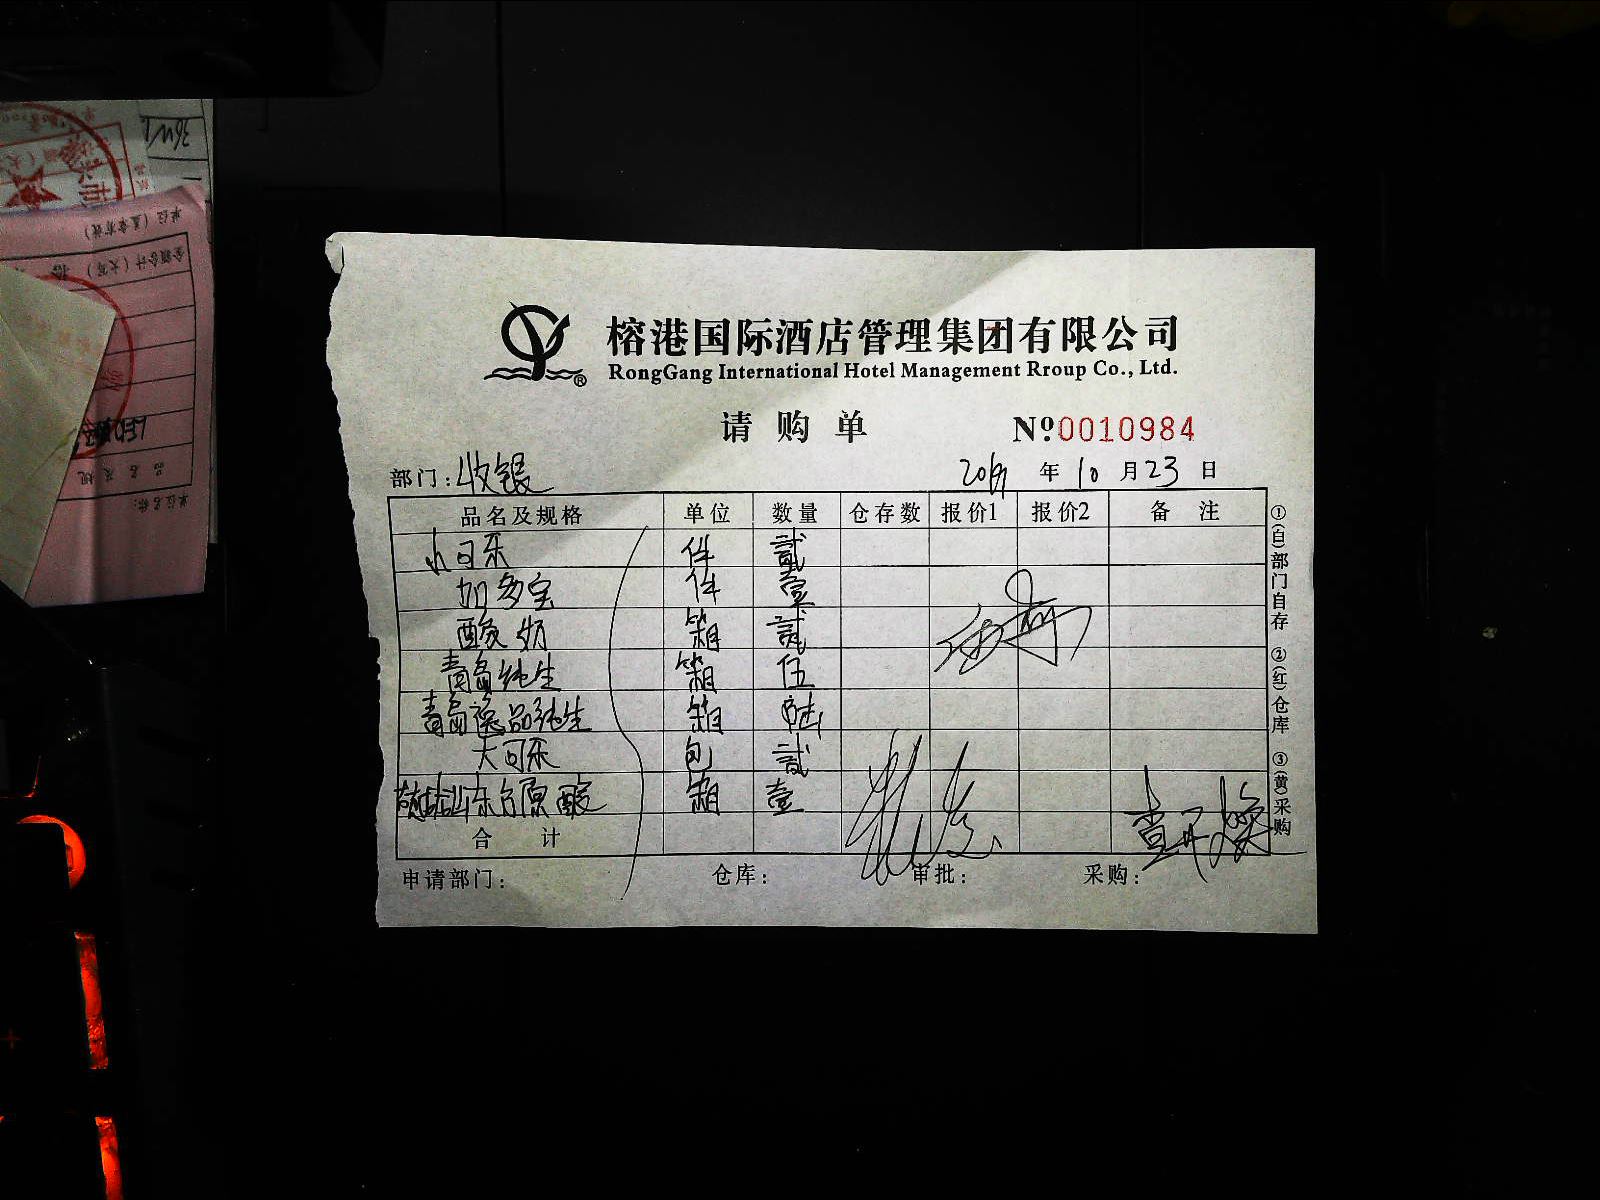 榕港国际酒店管理集团有限公司
RongGang International Hotel Management Rroup Co., Ltd.
®
请购单 Nº0010984
部门：收银 年10月23日
品名及规格 单位 数量 仓存数 报价1 报价2 备注
小可乐 件 贰
加多宝 件 壹
酸奶 箱 贰
青岛纯生 箱 伍
青岛逸品纯生 箱 陆
大可乐 包 贰
箱 壹
合计
申请部门： 仓库： 审批： 采购：
①(白)部门自存 ②(红)仓库 ③(黄)采购
单位（盖章有效）
金额合计（大写） 拾
LED
品名及规
单位名称：